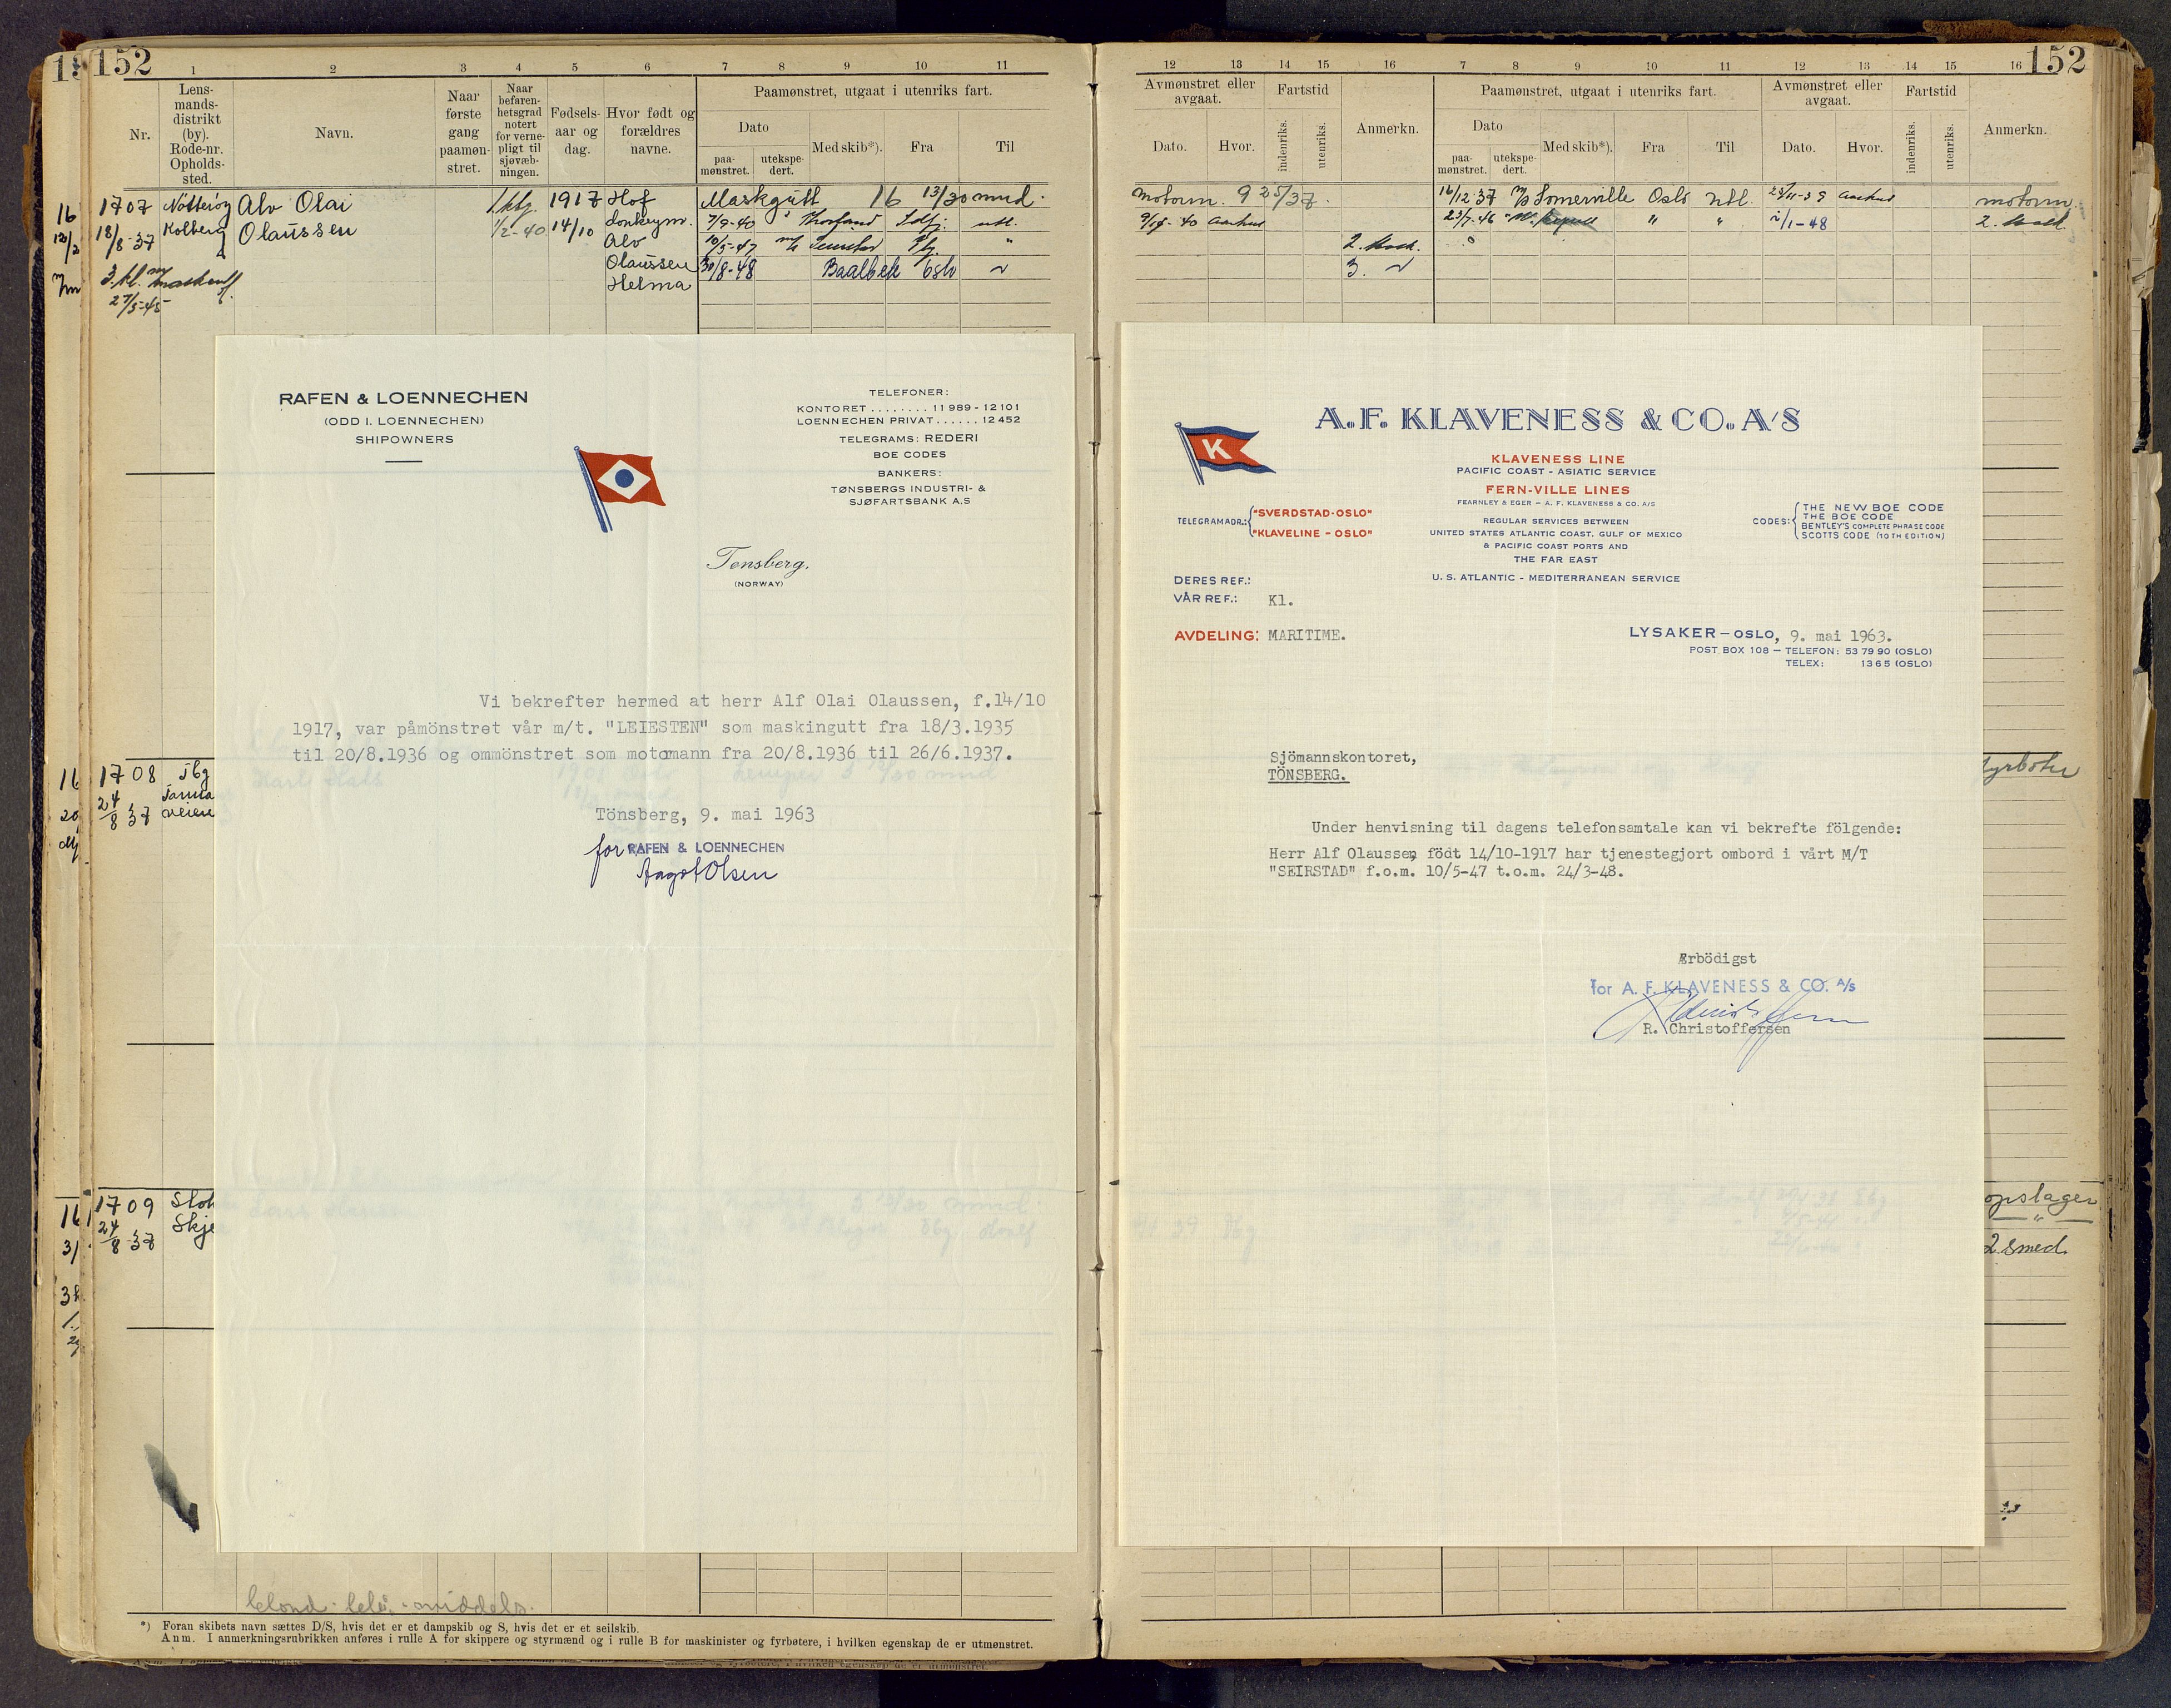 152
152
1 2 3 4 5 6 7 8 9 10 11
12 13 14 15 16 7 8 9 10 11 12 13 14 15 16
Nr.
Lens-
mands-
distrikt
(by).
Rode-nr.
Opholds-
sted.
Navn.
Naar
første
gang
paamøn-
stret.
Naar
befaren-
hetsgrad
notert
for verne-
pligt til
sjøvæb-
ningen.
Fødsels-
aar og
dag.
Hvor født og
forældres
navne.
Paamønstret, utgaat i utenriks fart.
Dato
paa-
mønstret.
utekspe-
dert.
Med skib*).
Fra
Til
Avmønstret eller
avgaat.
Dato.
Hvor.
Fartstid
indenriks.
utenriks.
Anmerkn.
Paamønstret, utgaat i utenriks fart.
Dato
paa-
mønstret.
utekspe-
dert.
Med skib*).
Fra
Til
Avmønstret eller
avgaat.
Dato.
Hvor.
Fartstid
indenriks.
utenriks.
Anmerkn.
1707 Nötteröy Alv Olai 1917 Hof Maskgutt 16 13/30 mnd.
18/8-37 Kolberg Olaussen 1/2-40 14/10 donkeym. 7/9-40
Alv 10/5-47
Olaussen 30/8-48 Baalbek Oslo
Helma
27/5-45
motorm. 9 25/37. 16/12-37 M/S Somerville Oslo utl. motorm.
40 Aarhus 23/7-46 " " 1/1-48 2. mask.
2. mask.
3. "
RAFEN & LOENNECHEN
(ODD I. LOENNECHEN)
SHIPOWNERS
TELEFONER:
KONTORET ........ 11989 - 12101
LOENNECHEN PRIVAT ...... 12452
TELEGRAMS: REDERI
BOE CODES
BANKERS:
TØNSBERGS INDUSTRI- &
SJØFARTSBANK A.S
Tønsberg,
(NORWAY)
Vi bekrefter hermed at herr Alf Olai Olaussen, f.14/10
1917, var påmönstret vår m/t. "LEIESTEN" som maskingutt fra 18/3.1935
til 20/8.1936 og ommönstret som motomann fra 20/8.1936 til 26/6.1937.
Tönsberg, 9. mai 1963
for RAFEN & LOENNECHEN
Aagot Olsen
K
A.F. KLAVENESS & CO. A/S
KLAVENESS LINE
PACIFIC COAST - ASIATIC SERVICE
FERN-VILLE LINES
FEARNLEY & EGER - A. F. KLAVENESS & CO. A/S
REGULAR SERVICES BETWEEN
UNITED STATES ATLANTIC COAST, GULF OF MEXICO
& PACIFIC COAST PORTS AND
THE FAR EAST
U. S. ATLANTIC - MEDITERRANEAN SERVICE
TELEGRAMADR.: "SVERDSTAD-OSLO"
"KLAVELINE - OSLO"
CODES: THE NEW BOE CODE
THE BOE CODE
BENTLEY'S COMPLETE PHRASE CODE
SCOTTS CODE (10TH EDITION)
DERES REF.:
VÅR REF.: Kl.
AVDELING: MARITIME.
LYSAKER - OSLO, 9. mai 1963.
POST BOX 108 - TELEFON: 53 79 90 (OSLO)
TELEX: 1365 (OSLO)
Sjömannskontoret,
TÖNSBERG.
Under henvisning til dagens telefonsamtale kan vi bekrefte fölgende:
Herr Alf Olaussen, födt 14/10-1917 har tjenestegjort ombord i vårt M/T
"SEIRSTAD" f.o.m. 10/5-47 t.o.m. 24/3-48.
Ærbödigst
for A. F. KLAVENESS & CO. A/S
R. Christoffersen
1708 Tbg
24/8 37
fyrböter
1709
24/8 37
opslager
"
2 smed.
blond. middels.
*) Foran skibets navn sættes D/S, hvis det er et dampskib og S, hvis det er et seilskib.
Anm. I anmerkningsrubrikken anføres i rulle A for skippere og styrmænd og i rulle B for maskinister og fyrbøtere, i hvilken egenskap de er utmønstret.